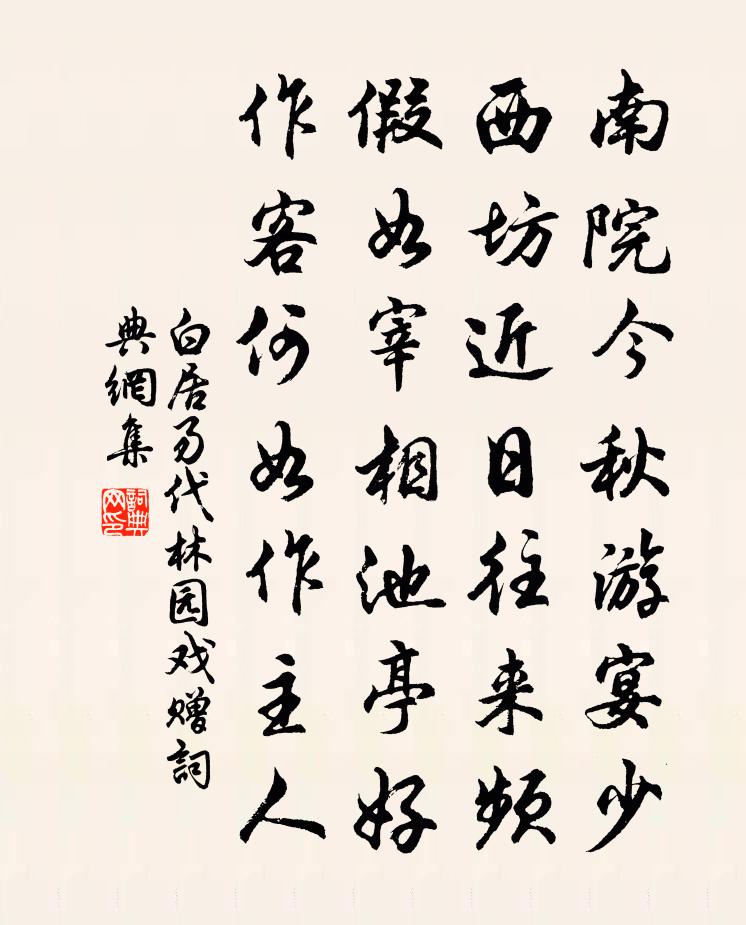 南院今秋游宴少
西坊近日往来频
假如宰相池亭好
作客何如作主人
白居易代林园戏赠詞
典網集
詞典
网印